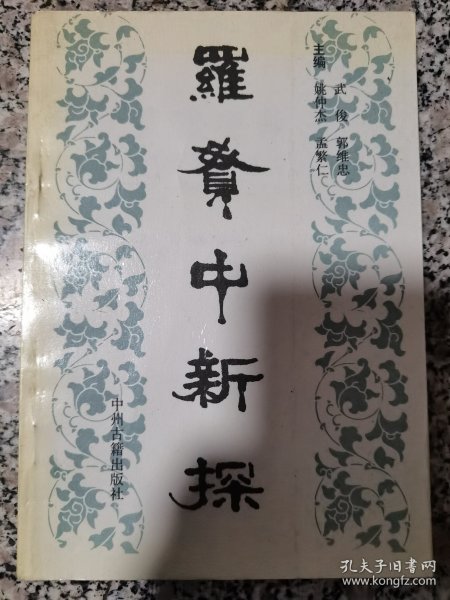 主编
武俊 郭维忠
姚仲杰 孟繁仁
羅貫中新探
中州古籍出版社
孔夫子旧书网
www.kongfz.com